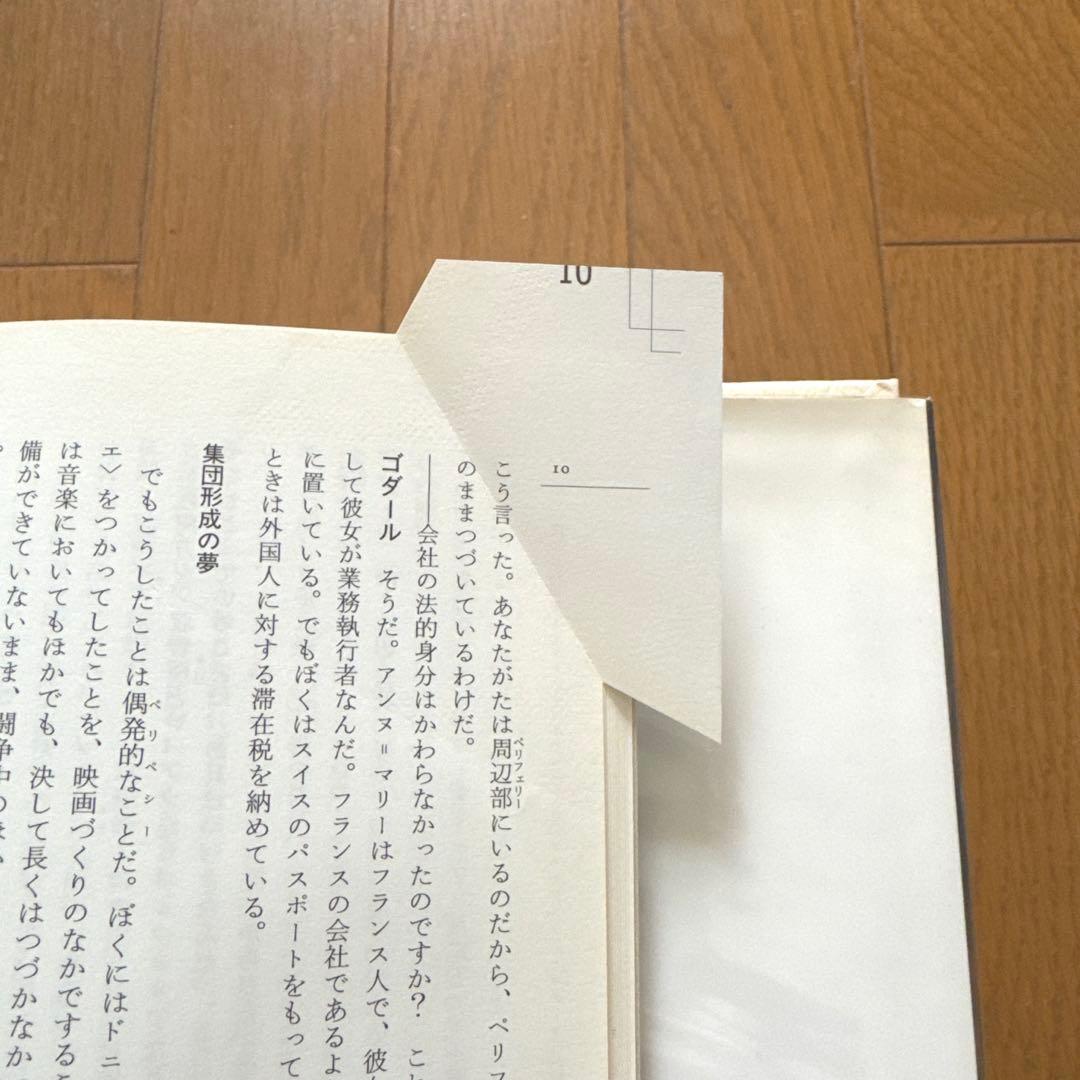 10
10
こう言った。あなたがたは周辺部にいるのだから、ペリフ
ペリフェリー
のままつづいているわけだ。
——会社の法的身分はかわらなかったのですか？　こ
ゴダール　そうだ。アンヌ＝マリーはフランス人で、彼
して彼女が業務執行者なんだ。フランスの会社であるよ
に置いている。でもぼくはスイスのパスポートをもって
ときは外国人に対する滞在税を納めている。
集団形成の夢
でもこうしたことは偶発的なことだ。ぼくにはドニ
ペリペシー
エ〉をつかってしたことを、映画づくりのなかでする
は音楽においてもほかでも、決して長くはつづかなか
備ができていないまま、闘争中の